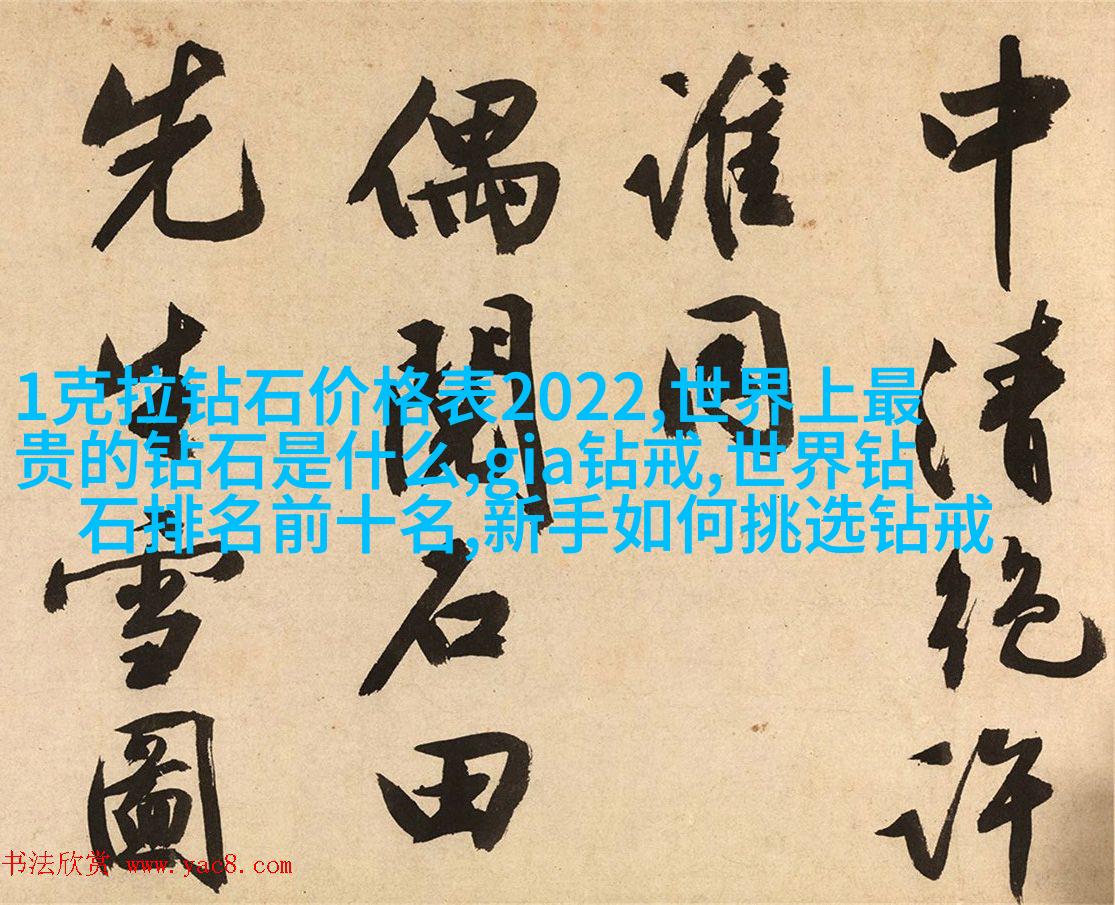 中清絶許
誰同
偶閲石田
先生雪圖
1克拉钻石价格表2022,世界上最
贵的钻石是什么,gia钻戒,世界钻
石排名前十名,新手如何挑选钻戒
书法欣赏 www.yac8.com